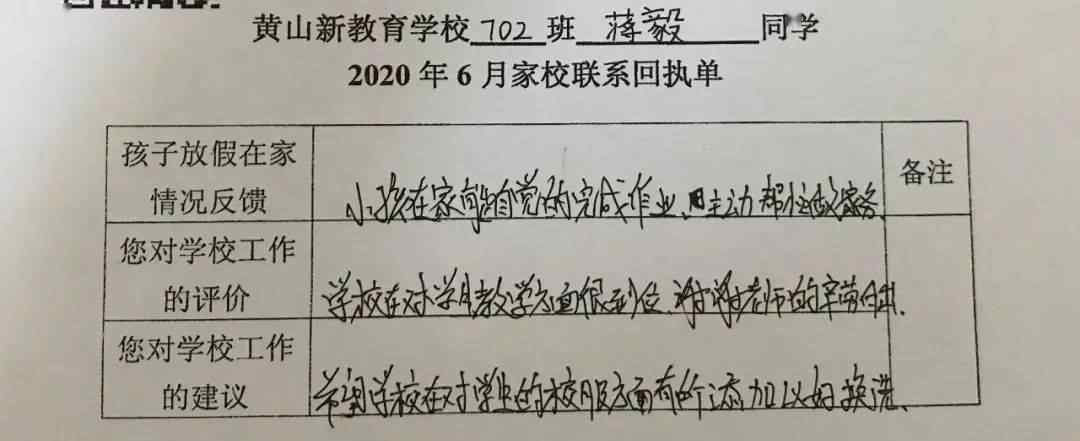 黄山新教育学校 702 班 蒋毅 同学
2020 年 6 月家校联系回执单
孩子放假在家
情况反馈
小孩在家能自觉的完成作业、且主动帮忙做家务.
备注
您对学校工作
的评价
学校在对学生教学方面很到位、谢谢老师的辛劳付出.
您对学校工作
的建议
希望学校在对学生的校服方面有所添加以好换洗、